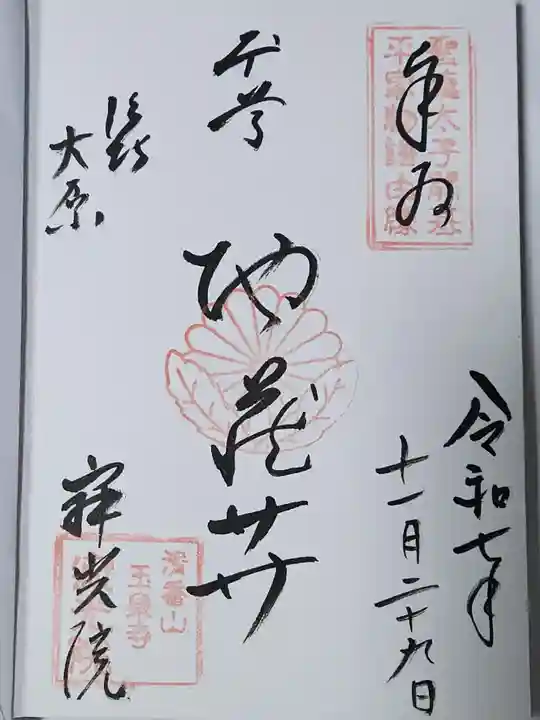 聖徳太子開基
平家物語由縁
奉拝
令和七年
十一月二十九日
本尊
地蔵𦬇
大原
寂光院
清香山
玉泉寺